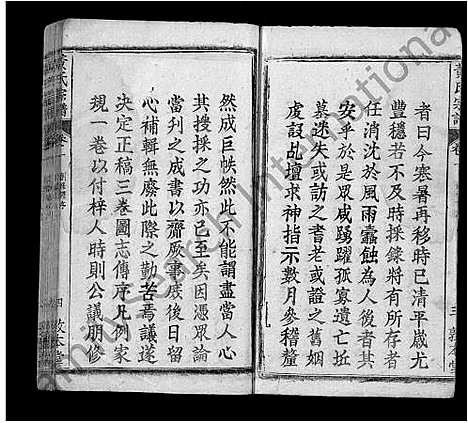 黃氏宗譜
卷一
三
敦本堂
者曰今寒暑再移時已清平歲尤
豐穩若不及時採錄將有所存者
任消沈於風雨蠹蝕為人後者其
安乎於是眾咸踴躍孤寡遺亡坵
墓迷失或訪之耆老或證之舊姻
虔設乩壇求神指示數月參稽釐
然成巨帙然此不能謂盡當人心
其搜採之功亦已至矣因憑眾論
當刊之成書以齋厥事感後日留
心補輯無廢此際之勤苦焉議遂
決定正稿三卷圖志傳序凡例家
規一卷以付梓人時則公議朋修
黃氏宗譜
卷一
四
敦本堂